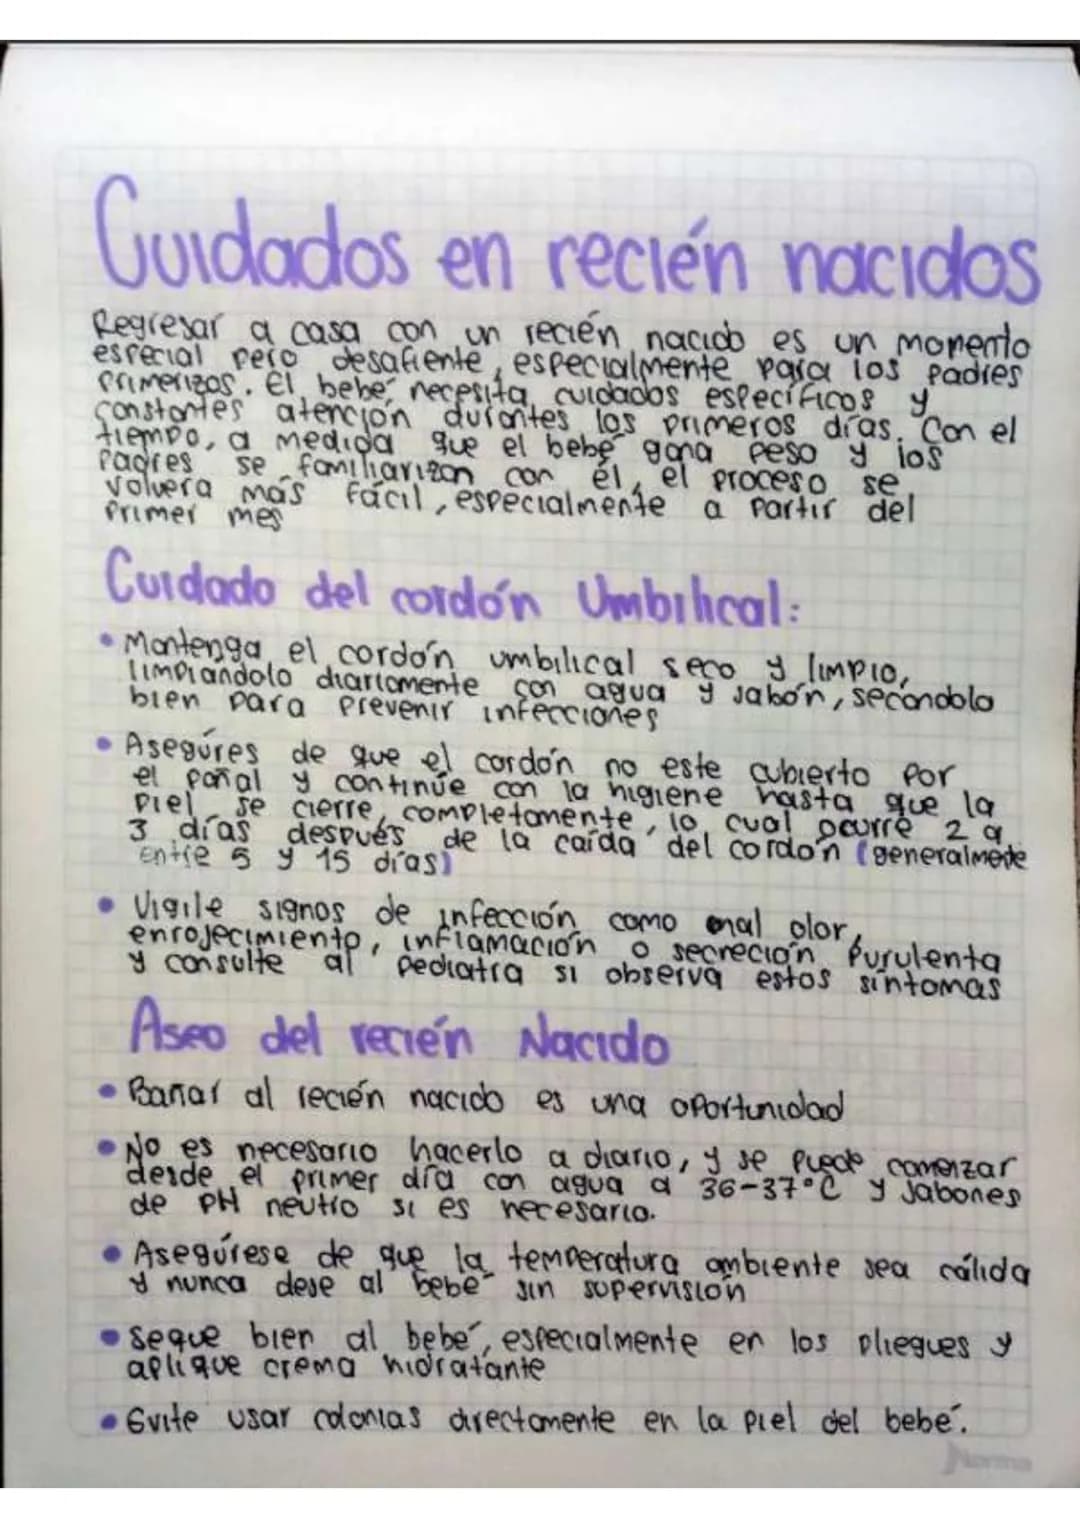 Cuidados en recién nacidos
Regresar a casa con un recién nacido es un momento
especial pero desafiente, especialmente para los padres
primerizos. El bebé, necesita cuidados específicos y
constantes atención durantes los primeros días. Con el
tiempo, a medida que el bebé gana peso y los
padres se familiarizan con él, el proceso se
volvera más fácil, especialmente a partir del
primer mes
Cuidado del cordón Umbilical:
• Mantenga el cordón umbilical seco y limpio,
limpiandolo diariamente con agua y jabón, secandolo
bien para prevenir infecciones
• Asegúres de que el cordón no este cubierto por
el pañal y continúe con la higiene hasta que la
piel se cierre completamente, lo cual ocurre 2 a
3 días después de la caída del cordón (generalmente
entre 5 y 15 días)
• Vigile signos de infección como mal olor,
enrojecimiento, inflamación o secreción purulenta
y consulte al pediatra si observa estos síntomas
Aseo del recién Nacido
• Bañar al recién nacido es una oportunidad
• No es necesario hacerlo a diario, y se puede comenzar
desde el primer día con agua a 36-37°C y Jabones
de PH neutro si es necesario.
• Asegúrese de que la temperatura ambiente sea cálida
y nunca deje al bebé sin supervisión
• Seque bien al bebé, especialmente en los pliegues y
aplique crema hidratante
• Evite usar colonias directamente en la piel del bebé.
Norma